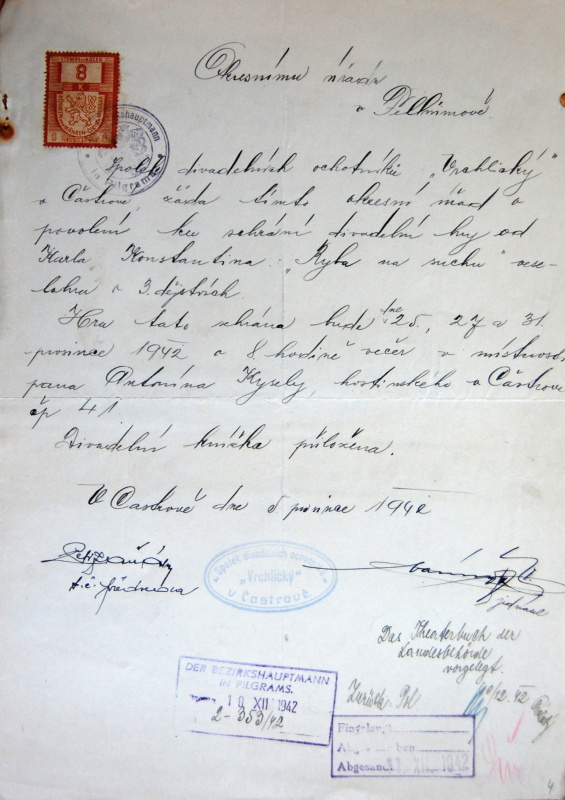 8
K
Okresnímu úřadu
v Pelhřimově.
Bezirkshauptmann
in Pilgrams
Spolek divadelních ochotníků „Vrchlický"
v Častrově, žádá tímto okresní úřad o
povolení ku sehrání divadelní hry od
Karla Konstantina: „Ryba na suchu" vese-
lohra o 3. dějstvích.
Hra tato sehrána bude dne 25., 27 a 31.
prosince 1942 o 8. hodině večer v místnosti
pana Antonína Kysely, hostinského v Častrově
čp 41.
Divadelní knížka přiložena.
V Častrově dne 5. prosince 1942
t.č. předseda
Spolek divadelních ochotníků
„Vrchlický"
v Častrově
jednatel
Das Theaterbuch der
Landesbehörde
vorgelegt.
DER BEZIRKSHAUPTMANN
IN PILGRAMS.
10 XII 1942
2-353/42
Zurück
/12. 42
Eingelangt
Abgeschrieben
Abgesandt 11. XII. 1942
4